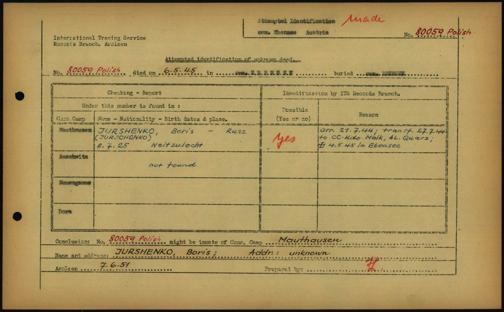 Attempted Identification made
cem. Ebensee Austria
No. 80059 Polish
International Tracing Service
Records Branch, Arolsen
Attempted identification of unknown dead.
No. 80059 Polish died on 6.5.45 in cem. EBENSEE buried cem.
Checking - Report
Identification by ITS Records Branch.
Under this number is found in :
Possible
(Yes or no)
Reason
Conc Camp
Name - Nationality - Birth dates & place.
Mauthausen
JURSHENKO, Boris - Russ
(JURCHENKO)
2.7.25 Neitzulecht
Yes
arr. 21.7.44; transf. 27.7.44
to CC-Kdo Melk, AL. Quarz;
4.5.45 in Ebensee
Auschwitz
not found
Buchenwald
Dora
Conclusion: No. 80059 Polish might be inmate of Conc. Camp Mauthausen
Name and address: JURSHENKO, Boris; Addr: unknown
Arolsen 7.6.51 Prepared by: